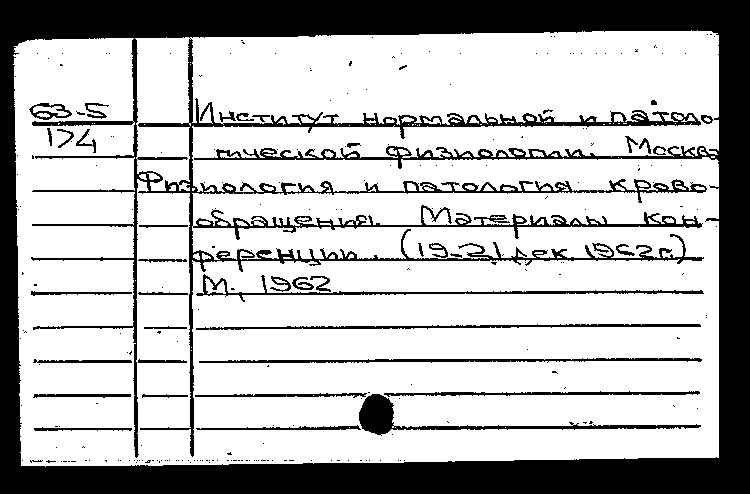 63-5
174
Институт нормальной и патоло-
гической физиологии. Москва
Физиология и патология крово-
обращения. Материалы кон-
ференции. (19-21 дек. 1962 г.)
М., 1962